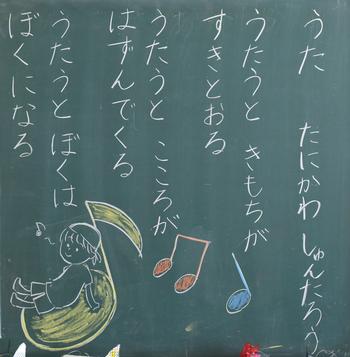 うた　たにかわ しゅんたろう
うたうと きもちが
すきとおる
うたうと こころが
はずんでくる
うたうと ぼくは
ぼくになる